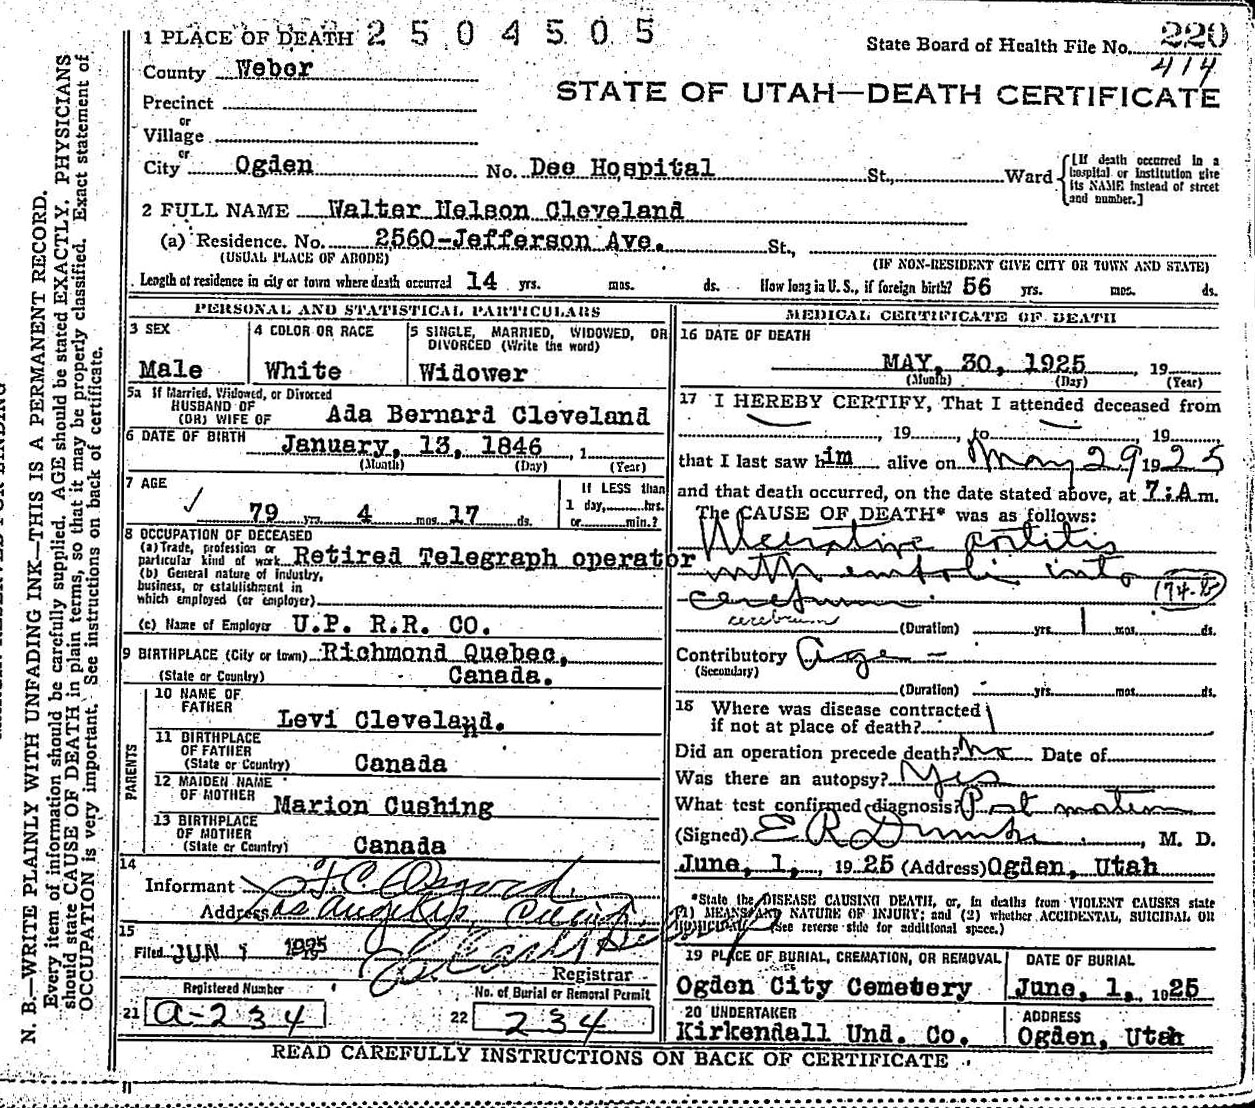 1 PLACE OF DEATH 2 5 0 4 5 0 5
State Board of Health File No. 220
414
County Weber
STATE OF UTAH—DEATH CERTIFICATE
Precinct
or
Village
or
City Ogden No. Dee Hospital St., Ward
[If death occurred in a
hospital or institution give
its NAME instead of street
and number.]
2 FULL NAME Walter Nelson Cleveland
(a) Residence. No. 2560-Jefferson Ave. St.,
(USUAL PLACE OF ABODE) (IF NON-RESIDENT GIVE CITY OR TOWN AND STATE)
Length of residence in city or town where death occurred 14 yrs. mos. ds. How long in U. S., if foreign birth? 56 yrs. mos. ds.
PERSONAL AND STATISTICAL PARTICULARS
3 SEX
Male
4 COLOR OR RACE
White
5 SINGLE, MARRIED, WIDOWED, OR
DIVORCED (Write the word)
Widower
5a If Married, Widowed, or Divorced
HUSBAND OF
(OR) WIFE OF Ada Bernard Cleveland
6 DATE OF BIRTH January, 13, 1846 , 1
(Month) (Day) (Year)
7 AGE
79 yrs. 4 mos. 17 ds.
If LESS than
1 day, hrs.
or min.?
8 OCCUPATION OF DECEASED
(a) Trade, profession or
particular kind of work Retired Telegraph operator
(b) General nature of industry,
business, or establishment in
which employed (or employer)
(c) Name of Employer U.P. R.R. CO.
9 BIRTHPLACE (City or town) Richmond Quebec,
(State or Country) Canada.
PARENTS
10 NAME OF
FATHER
Levi Cleveland.
11 BIRTHPLACE
OF FATHER
(State or Country) Canada
12 MAIDEN NAME
OF MOTHER Marion Cushing
13 BIRTHPLACE
OF MOTHER
(State or Country) Canada
14
Informant
Address Los Angeles,
15
Filed JUN 1 1925
Registrar
Registered Number
21 A-234
No. of Burial or Removal Permit
22 234
MEDICAL CERTIFICATE OF DEATH
16 DATE OF DEATH
MAY, 30, 1925 , 19
(Month) (Day) (Year)
17 I HEREBY CERTIFY, That I attended deceased from
, 19 , to , 19
that I last saw him alive on May 29 1925
and that death occurred, on the date stated above, at 7:A m.
The CAUSE OF DEATH* was as follows:
Ulcerative aortitis
with emboli into
cerebrum 174-B
cerebrum
(Duration) yrs 1 mos. ds.
Contributory Age -
(Secondary)
(Duration) yrs. mos. ds.
18 Where was disease contracted
if not at place of death?
Did an operation precede death? No Date of
Was there an autopsy? Yes
What test confirmed diagnosis? Post mortem
(Signed) E R , M. D.
June, 1, , 1925 (Address) Ogden, Utah
*State the DISEASE CAUSING DEATH, or, in deaths from VIOLENT CAUSES state
(1) MEANS AND NATURE OF INJURY; and (2) whether ACCIDENTAL, SUICIDAL OR
HOMICIDAL. (See reverse side for additional space.)
19 PLACE OF BURIAL, CREMATION, OR REMOVAL
Ogden City Cemetery
DATE OF BURIAL
June, 1, 1925
20 UNDERTAKER
Kirkendall Und. Co.
ADDRESS
Ogden, Utah
READ CAREFULLY INSTRUCTIONS ON BACK OF CERTIFICATE
N. B.—WRITE PLAINLY WITH UNFADING INK—THIS IS A PERMANENT RECORD.
Every item of information should be carefully supplied. AGE should be stated EXACTLY. PHYSICIANS
should state CAUSE OF DEATH in plain terms, so that it may be properly classified. Exact statement of
OCCUPATION is very important. See instructions on back of certificate.